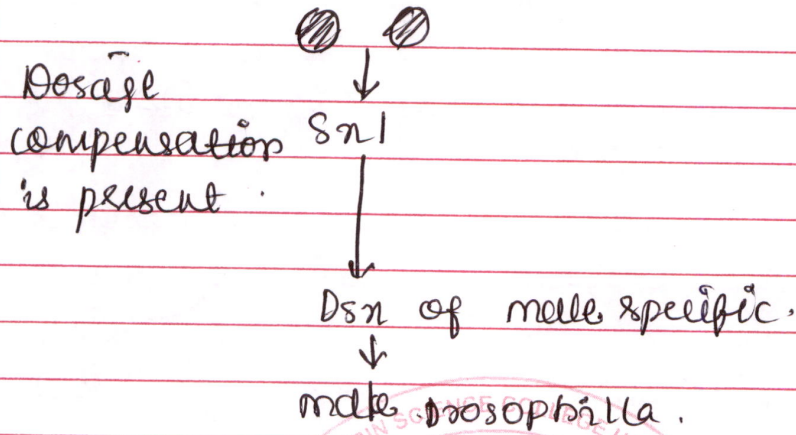 Dosage
compensation Sxl
is present.
Dsx of male specific.
↓
male Drosophilla.